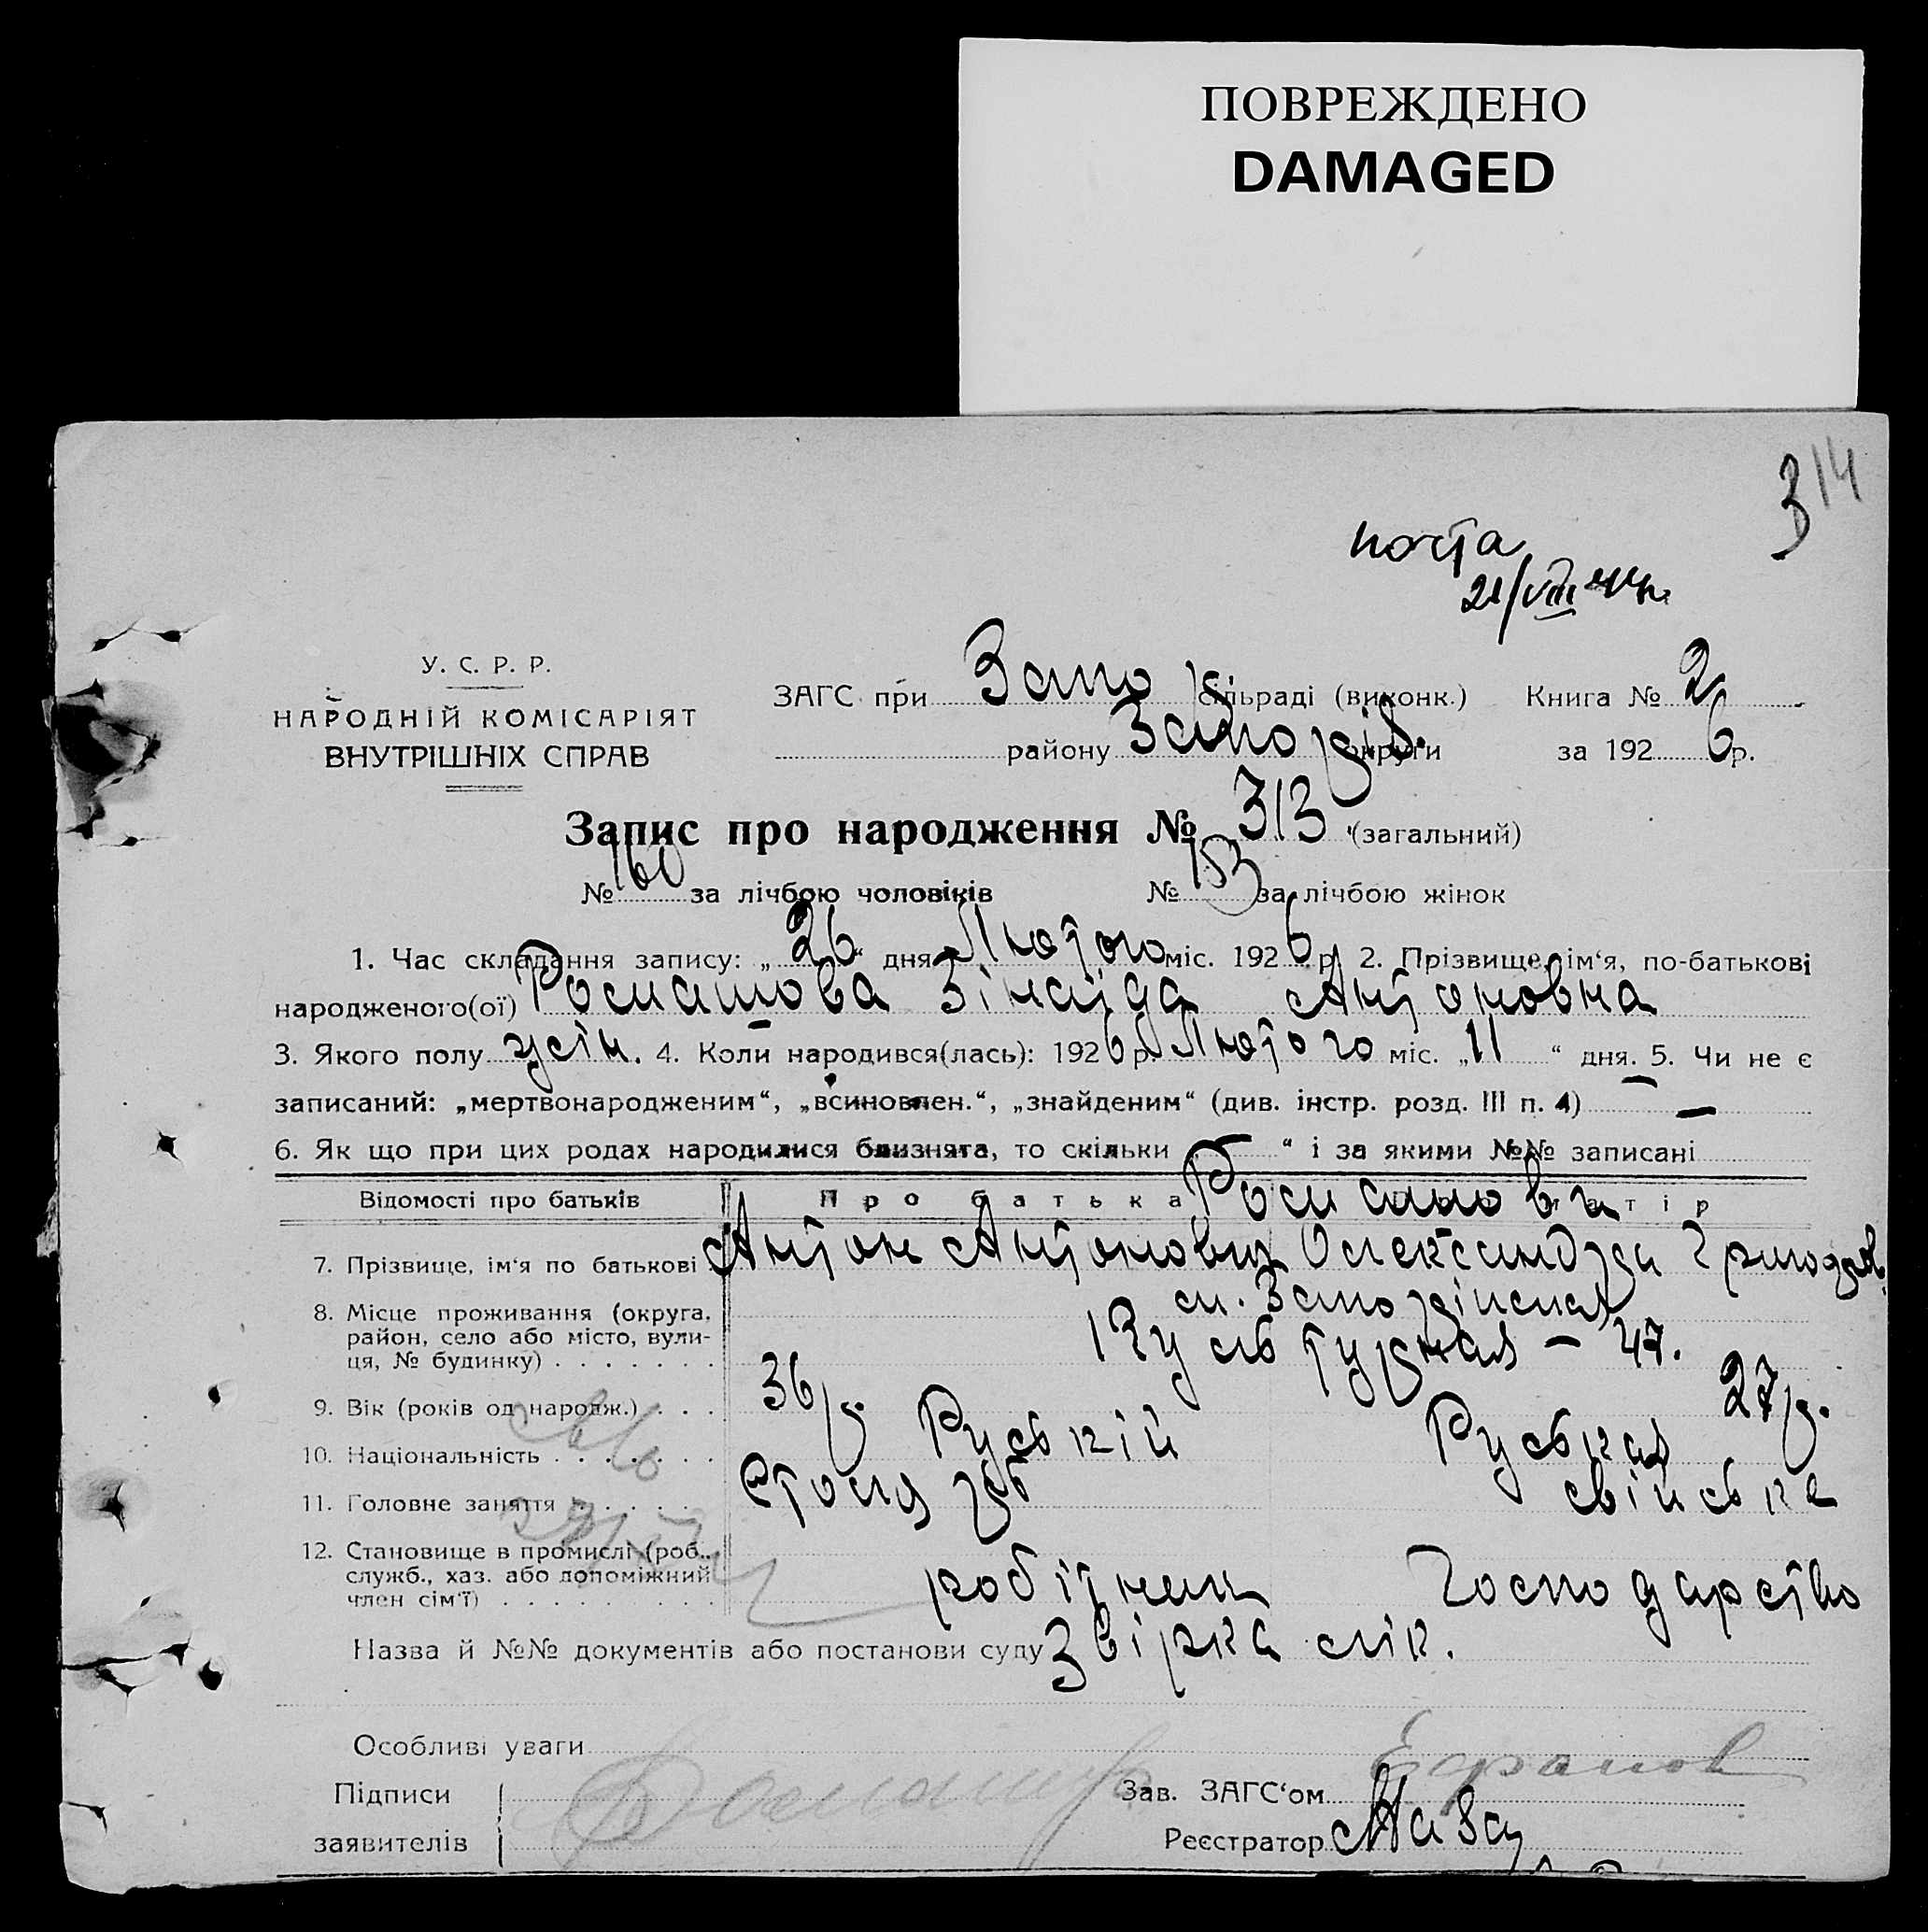 ПОВРЕЖДЕНО
DAMAGED
314
почта
21/VIII 44г.
У. С. Р. Р.
НАРОДНІЙ КОМІСАРІЯТ
ВНУТРІШНІХ СПРАВ
ЗАГС при Запо сільраді (виконк.) Книга № 2
району Запоріз. округи за 1926 р.
Запис про народження № 313 (загальний)
№ 160 за лічбою чоловіків № 153 за лічбою жінок
1. Час складання запису: „26“ дня Лютого міс. 1926 р. 2. Прізвище, ім‘я, по-батькові
народженого(ої) Росматова Зінаїда Антоновна
3. Якого полу жін. 4. Коли народився(лась): 1926 р. Лютого міс. „11“ дня. 5. Чи не є
записаний: „мертвонародженим“, „всиновлен.“, „знайденим“ (див. інстр. розд. III п. 4) —
6. Як що при цих родах народилися близнята, то скільки „—“ і за якими №№ записані
Відомості про батьків Про батька матір
7. Прізвище, ім‘я по батькові Антон Антонович Олександра Григоров.
8. Місце проживання (округа, район, село або місто, вулиця, № будинку) м. Запоріжжя
Культурная – 47.
9. Вік (років од народж.) 36 р. 27 р.
10. Національність Руський Руська
11. Головне заняття Столяр свійське
12. Становище в промислі (роб., служб., хаз. або допоміжний член сім‘ї) робітник господарство
Назва й №№ документів або постанови суду Звірка лік.
Особливі уваги
Підписи
заявителів
Зав. ЗАГС‘ом
Реєстратор